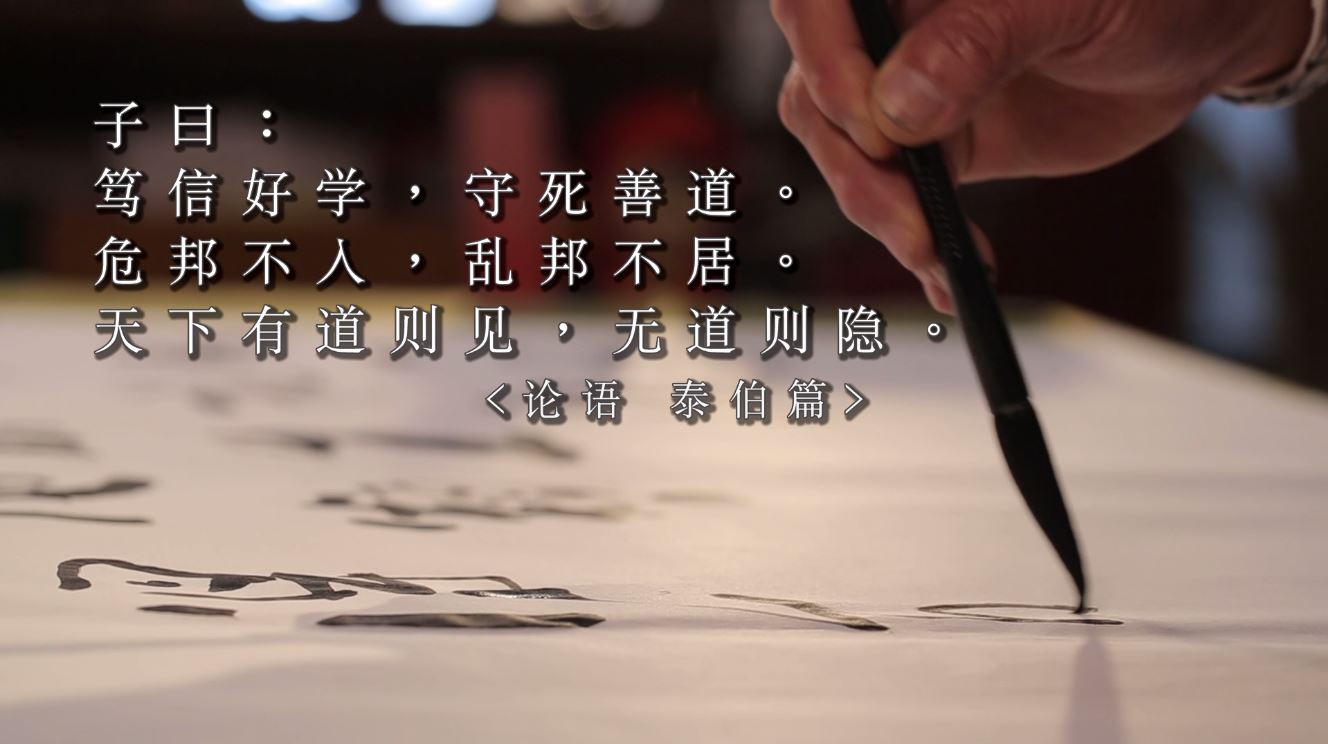 子曰：
笃信好学，守死善道。
危邦不人，乱邦不居。
天下有道则见，无道则隐。
<论语 泰伯篇>